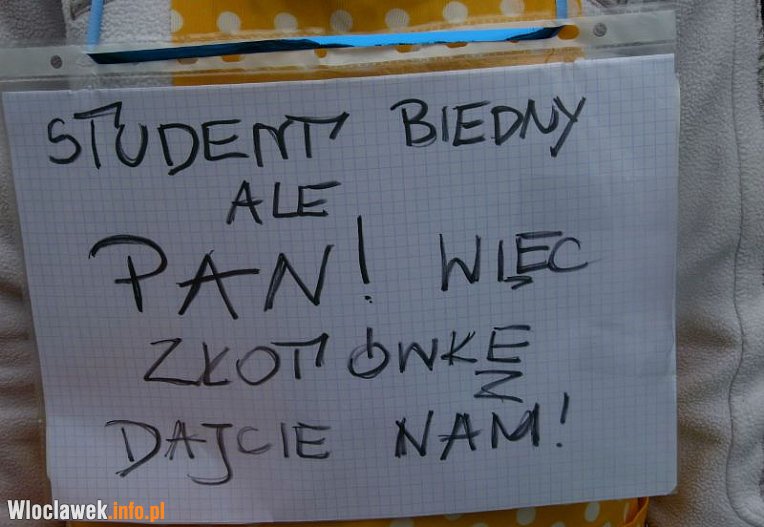 STUDENT BIEDNY
ALE
PAN! WIĘC
ZŁOTÓWKĘ
DAJCIE NAM!
Wloclawek.info.pl